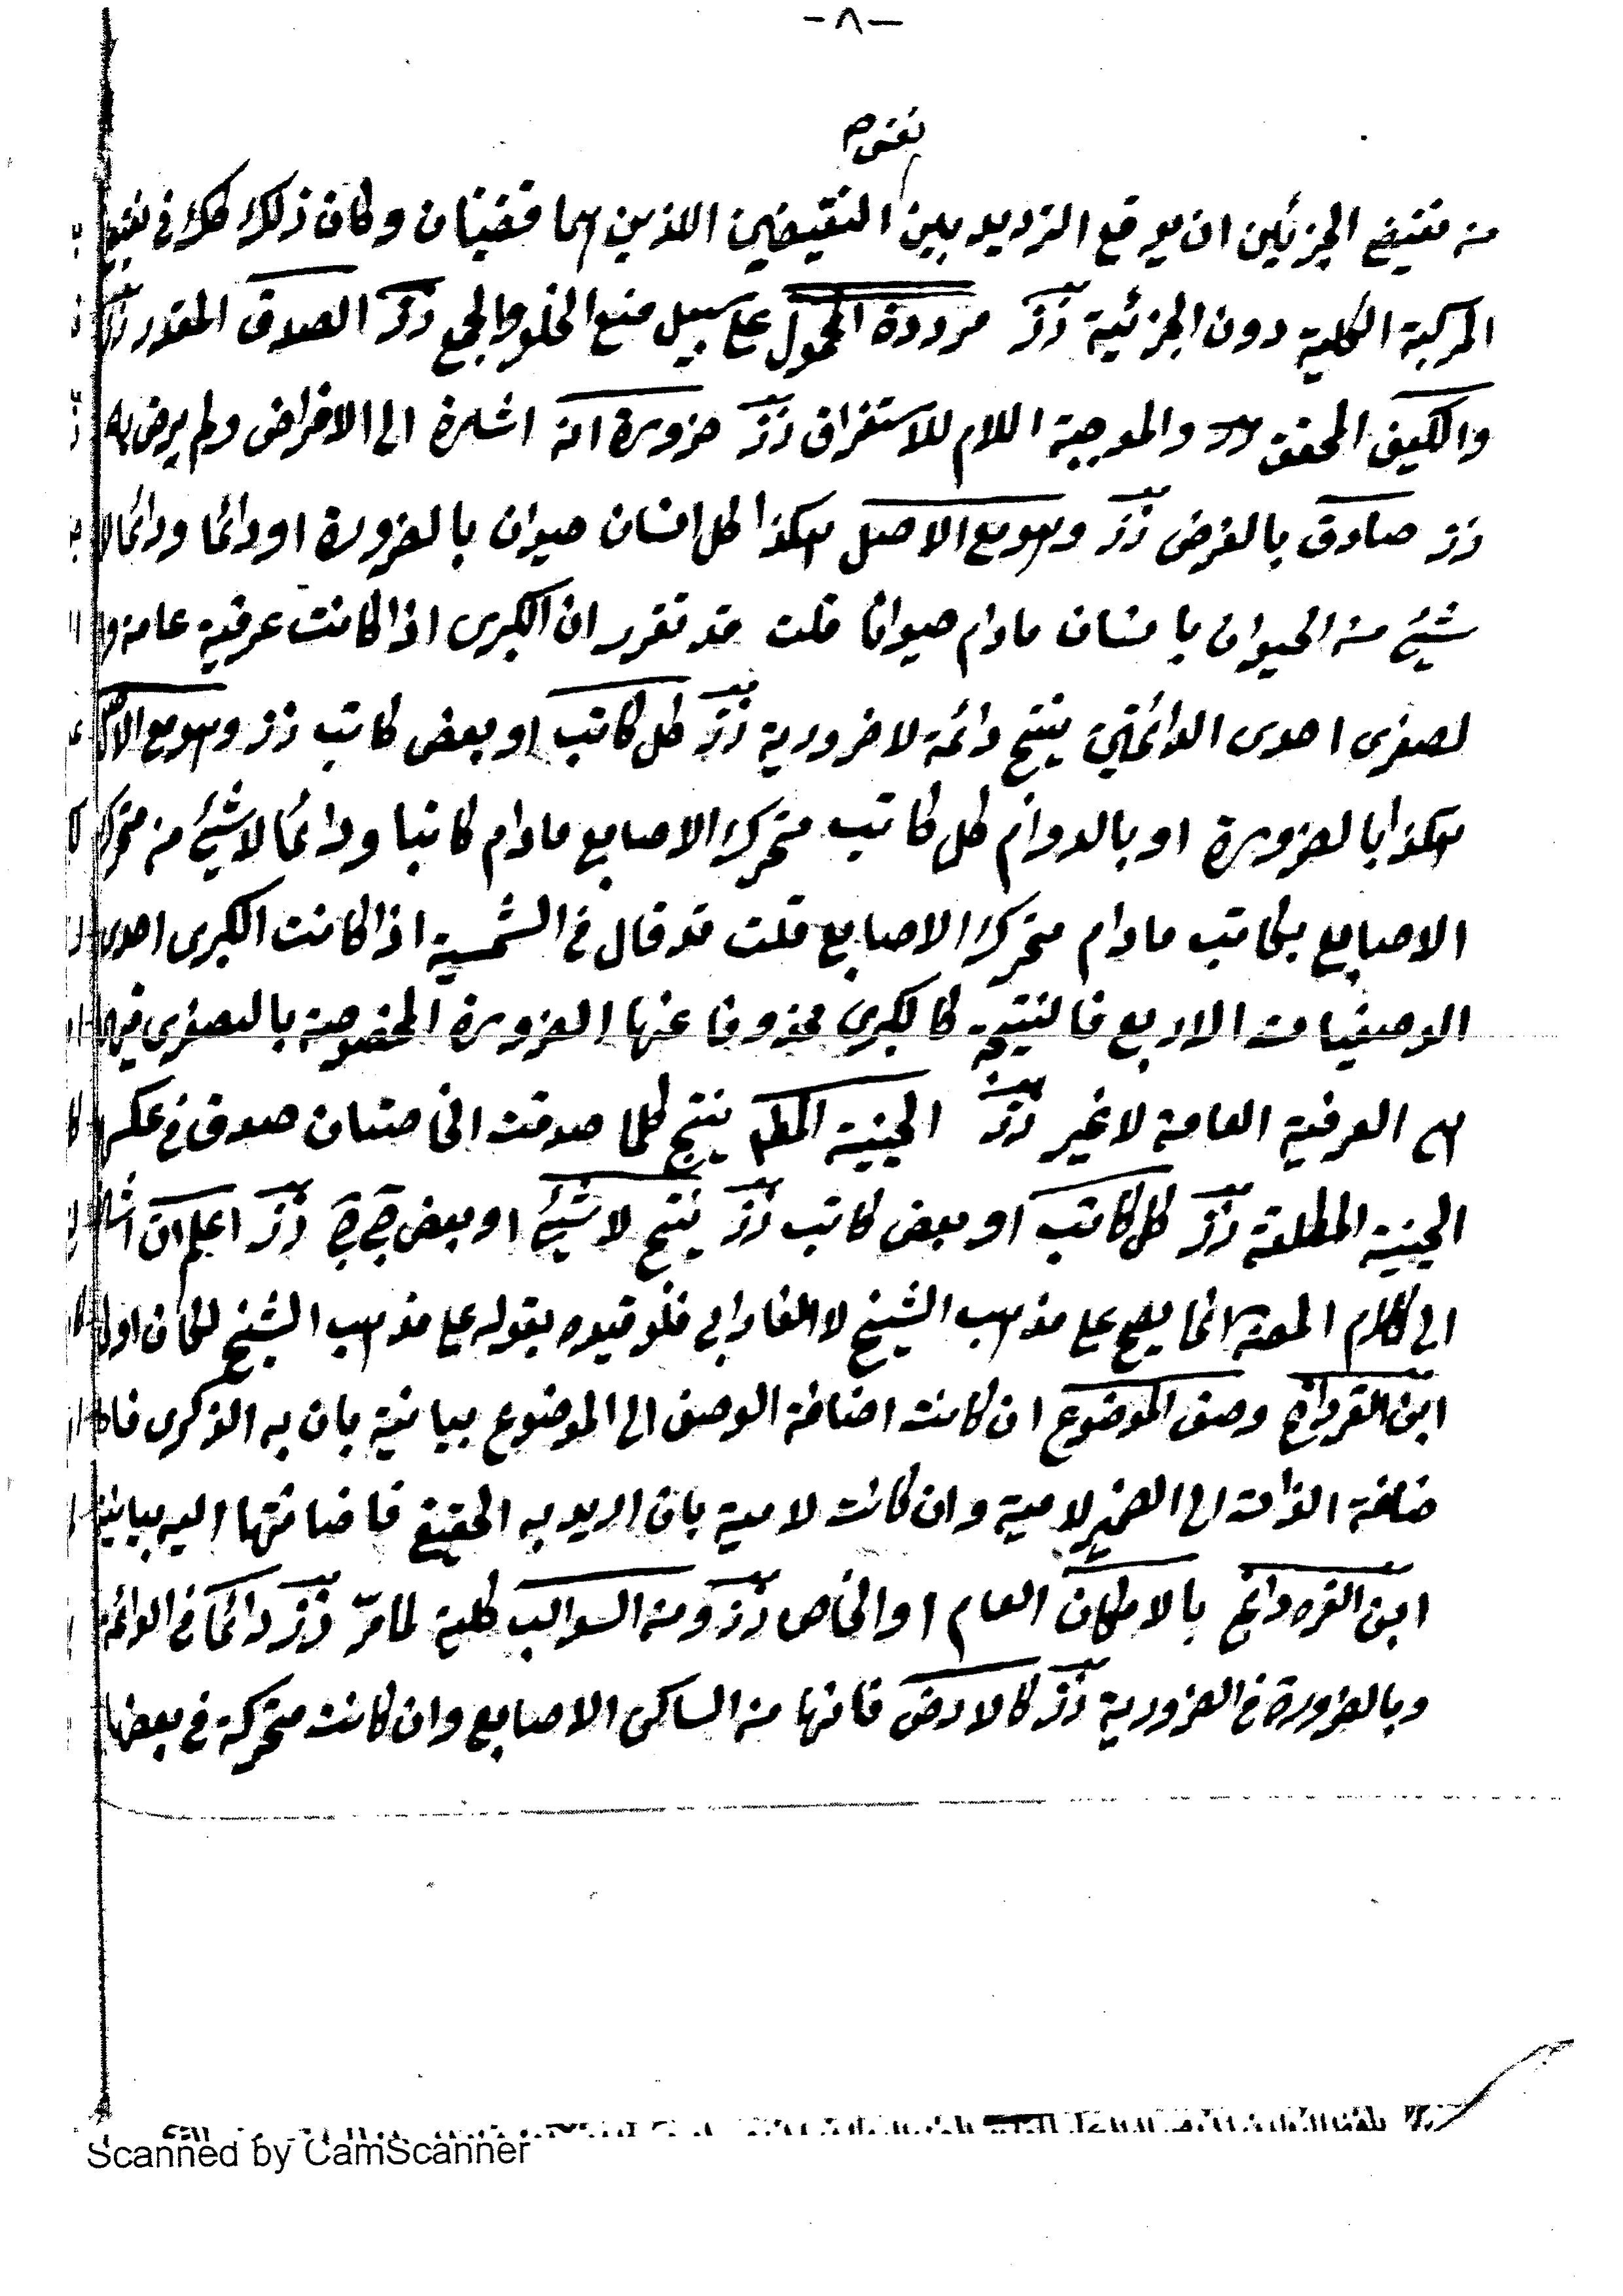 -٨-
نفس م
من نقيض الجزئين ان يوقع الترديد بين النقيضين اللذين هما قضيتان وكان ذلك كذلك في نقيض
المركبة الكلية دون الجزئية زز مرددة المحمول على سبيل منع الخلو والجمع زز الصدق المقدر زز
والكيف المحقق زز والموجبة اللام للاستغراق زز ضرورة انه اشارة الى الافتراض ولم يرض به
زز صادق بالفرض زز وهو مع الاصل هكذا كل انسان حيوان بالضرورة او دائما ودائما لا
شيئ من الحيوان بانسان مادام حيوانا قلت قد تقرر ان الكبرى اذا كانت عرفية عامة و
لصغرى احدى الدائمتين ينتج دائمة لا ضرورية زز كل كاتب او بعض كاتب زز وهو مع الاصل
هكذا بالضرورة او بالدوام كل كاتب متحرك الاصابع مادام كاتبا ودائما لا شيئ من متحرك
الاصابع بكاتب مادام متحرك الاصابع قلت قد قال في الشمسية اذا كانت الكبرى احدى
الوصفيات الاربع فالنتيجة كالكبرى محذوفا عنها الضرورة المخصوصة بالصغرى فهى
هى العرفية العامة لا غير زز الحينية المطلقة ينتج كلما صدقت الخاصتان صدق في عكسها
الحينية المطلقة زز كل كاتب او بعض كاتب زز ينتج لا شيئ او بعض ج ج زز اعلم ان
الى كلام المصنف انما يصح على مذهب الشيخ لا الفارابى فلو قيده بقوله على مذهب الشيخ لكان اولى
ابن القره داغى وصف الموضوع ان كانت اضافة الوصف الى الموضوع بيانية بان به الذكرى
ضافة الذات الى الضمير لامية وان كانت لامية بان اريد به الحقيقى فاضافتها اليه بيانية
ابن القره داغى بالامكان العام او الخاص زز ومن السوالب كلية لما مرّ زز دائما في الدائمة
وبالضرورة في الضرورية زز كالارض فانها من الساكن الاصابع وان كانت متحركة في بعضها
Scanned by CamScanner